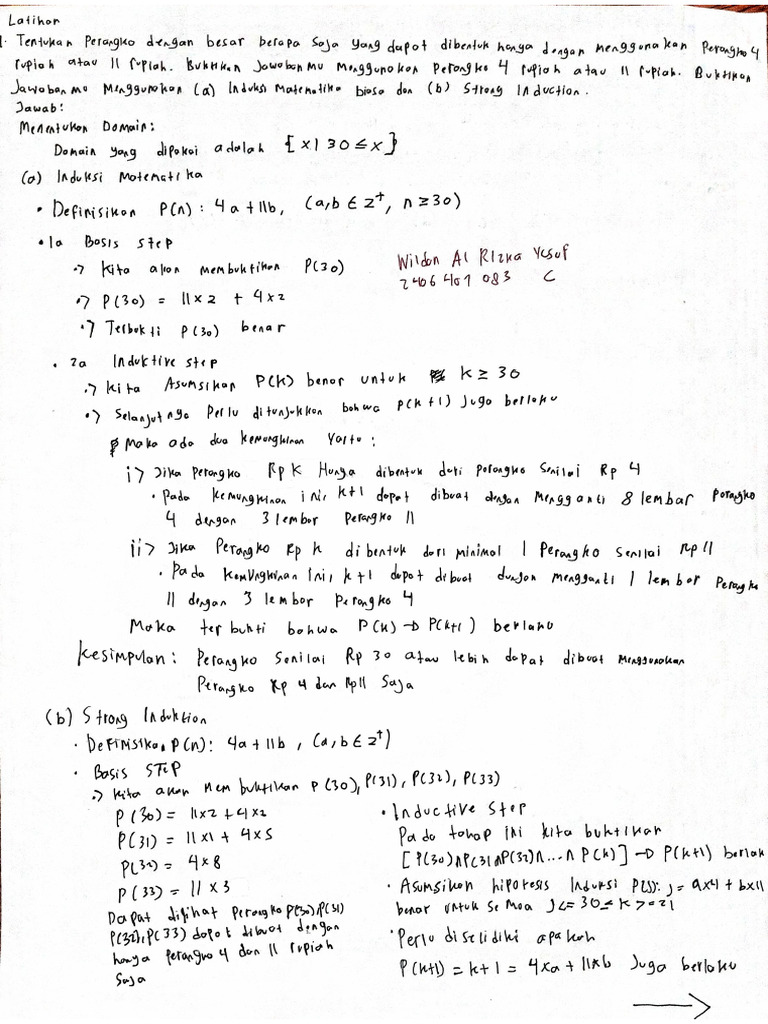 Latihan
1. Tentukan Perangko dengan besar berapa saja yang dapat dibentuk hanya dengan menggunakan Perangko 4
rupiah atau 11 rupiah. Buktikan Jawaban mu Menggunakan Perangko 4 rupiah atau 11 rupiah. Buktikan
Jawaban mu Menggunakan (a) Induksi Matematika biasa dan (b) Strong Induction.
Jawab:
Menentukan Domain:
Domain yang dipakai adalah {x | 30 ≤ x}
(a) Induksi Matematika
• Definisikan P(n): 4a + 11b, (a,b ∈ Z⁺, n ≥ 30)
• 1a Basis Step
-> Kita akan membuktikan P(30)
-> P(30) = 11 x 2 + 4 x 2
-> Terbukti P(30) benar
Wildan Al Rizka Yusuf
2406401083 C
• 2a Induktive step
-> Kita Asumsikan P(k) benar untuk k ≥ 30
-> Selanjutnya Perlu ditunjukkan bahwa P(k+1) Juga berlaku
Maka ada dua kemungkinan Yaitu:
i> Jika perangko Rp K Hanya dibentuk dari perangko Senilai Rp 4
• Pada kemungkinan ini, k+1 dapat dibuat dengan Mengganti 8 lembar perangko
4 dengan 3 lembar Perangko 11
ii> Jika Perangko Rp k dibentuk dari minimal 1 Perangko senilai Rp 11
• Pada Kemungkinan Ini, k+1 dapat dibuat dengan mengganti 1 lembar Perangko
11 dengan 3 lembar Perangko 4
Maka terbukti bahwa P(k) -> P(k+1) berlaku
Kesimpulan: Perangko Senilai Rp 30 atau lebih dapat dibuat Menggunakan
Perangko Rp 4 dan Rp 11 Saja
(b) Strong Induktion
• Definisikan P(n): 4a + 11b, (a,b ∈ Z⁺)
• Basis STEP
-> Kita akan Membuktikan P(30), P(31), P(32), P(33)
P(30) = 11 x 2 + 4 x 2
P(31) = 11 x 1 + 4 x 5
P(32) = 4 x 8
P(33) = 11 x 3
Dapat dilihat Perangko P(30) ∧ P(31)
P(32), P(33) dapat dibuat dengan
hanya perangko 4 dan 11 rupiah
Saja
• Inductive Step
Pada tahap ini kita buktikan
[P(30) ∧ P(31 ∧ P(32) ∧ ... ∧ P(k)] -> P(k+1) berlak
• Asumsikan hipotesis Induksi P(j): j = a x 4 + b x 11
benar untuk semua j <= 30 ≤ k >= 21
• Perlu diselidiki apakah
P(k+1) = k+1 = 4 x a + 11 x b Juga berlaku